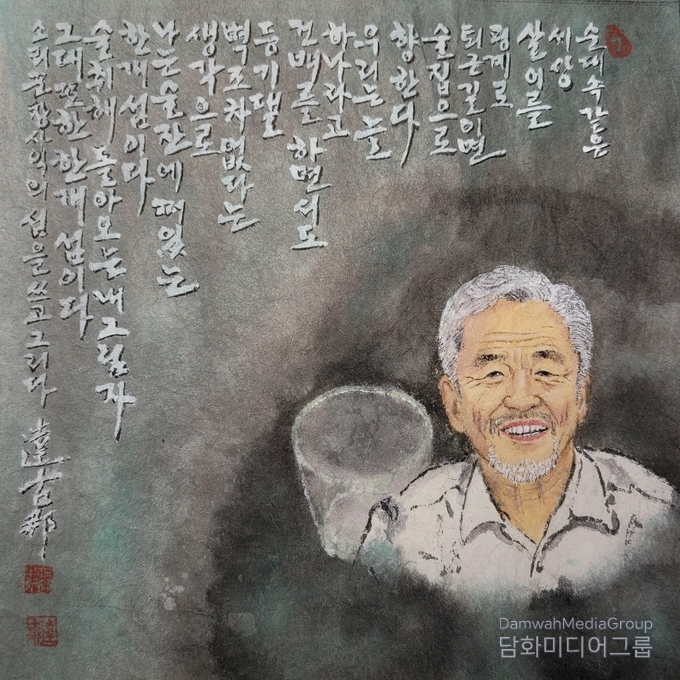 순대속 같은
세상
살이를
핑계로
퇴근길이면
술집으로
향한다
우리는 늘
하나라고
건배를 하면서도
등 기댈
벽조차 없다는
생각으로
나는 술잔에 떠있는
한개 섬이다
술취해 돌아오는 내 그림자
그대 또한 한개 섬이다
소리꾼 장사익의 섬을 쓰고 그리다
DamwahMediaGroup
담화미디어그룹